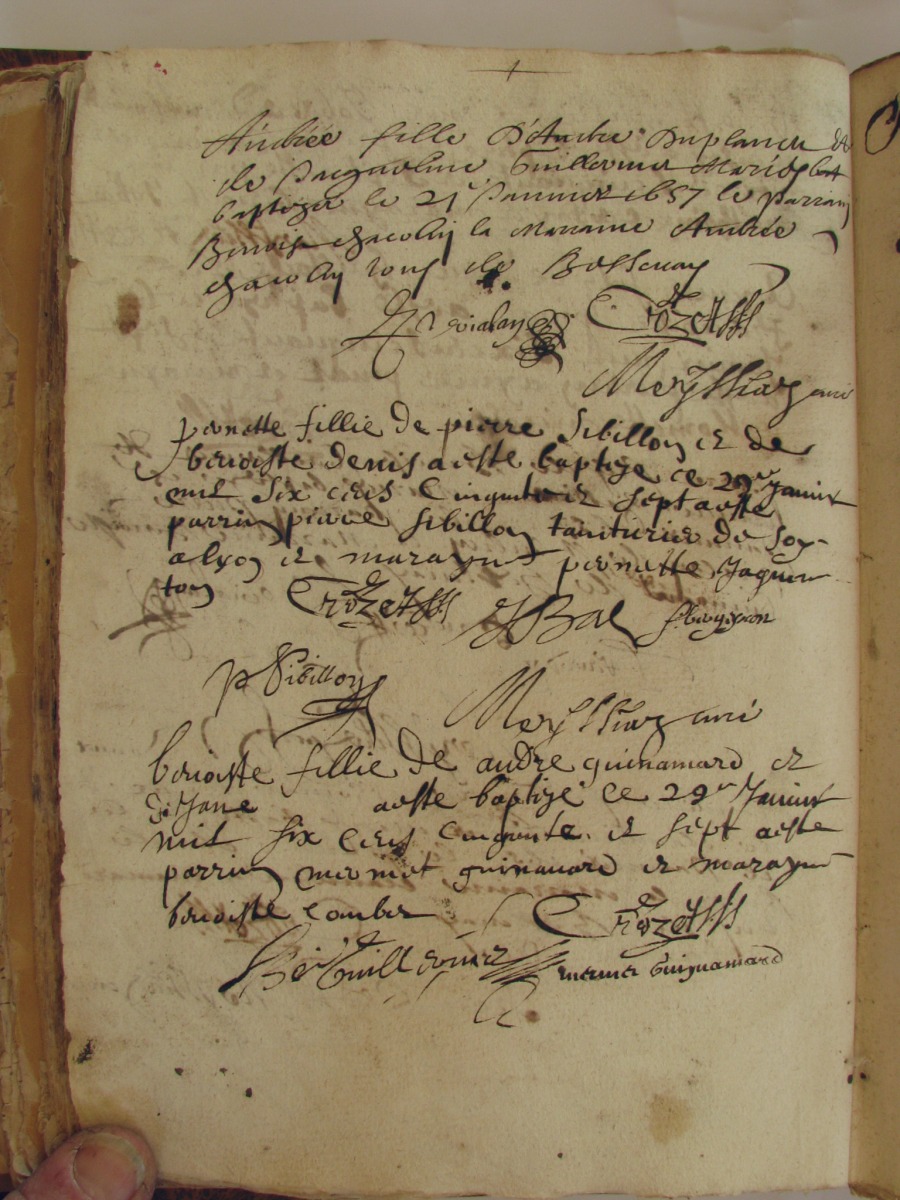 Andrée fille D'Andre Duplancu &
de Jacqueline Guillermet Mariés
baptizee le 21e Janvier 1657 le parrain
Benoist chacolin la Marraine Andrée
chacolin tous de Bessenay
Crozet
pernette fillie de pierre Sibillon et de
benoiste denis aeste baptize ce 29e Janvier
mil six cens Cinquante et sept aeste
parrin pierre sibillon tainturier de soy
a lyon et marayne pernette Jaque
ton Crozet JBal
p Sibillon
benoiste fillie de andre guinamard et
Jane aeste baptize ce 29e Janvier
mil six cens Cinquente et sept aeste
parrin mermet guinamard et marayne
benoiste Combet Crozet
Guillermet mermet Guignamard